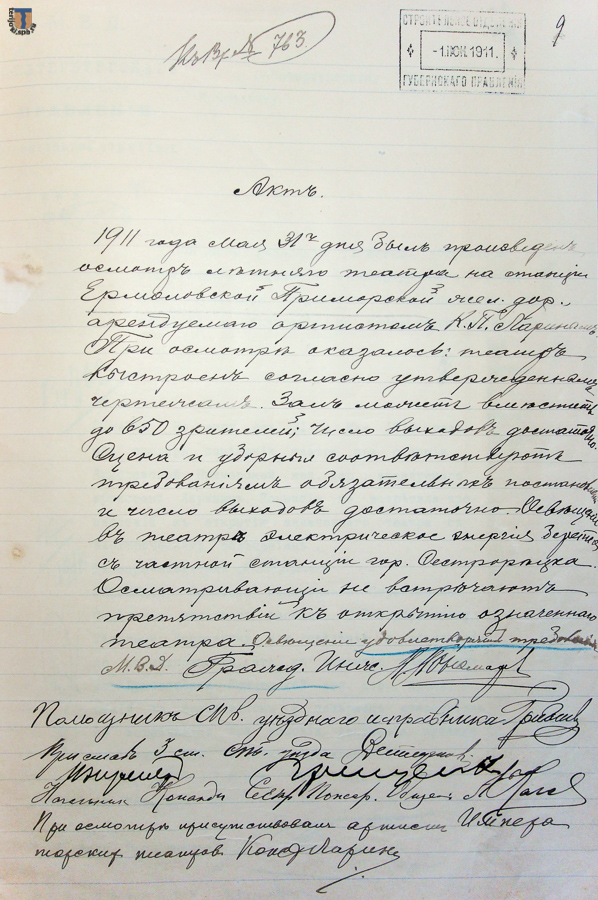 terijoki.spb.ru
Къ Вр. № 763.
9
СТРОИТЕЛЬНОЕ ОТДѢЛЕНІЕ
-1.ІЮН.1911.
ГУБЕРНСКАГО ПРАВЛЕНІЯ
Актъ.
1911 года мая 31го дня былъ произведенъ
осмотръ лѣтняго театра на станціи
Ермоловской Приморской жел. дор.
арендуемаго артистомъ К. П. Ларинымъ.
При осмотрѣ оказалось: театръ
выстроенъ согласно утвержденнымъ
чертежамъ. Залъ можетъ вмѣстить
до 650 зрителей; число выходовъ достаточно.
Сцена и уборныя соотвѣтствуютъ
требованіямъ обязательныхъ постановленій
и число выходовъ достаточно. Освѣщеніе
въ театрѣ электрическое энергія берется
съ частной станціи гор. Сестрорѣцка.
Осматривающіе не встрѣчаютъ
препятствій къ открытію означеннаго
театра. Освѣщеніе удовлетворяетъ требованіямъ
М.В.Д. Гражд. Инж.
Помощникъ СПб. уѣзднаго исправника
Приставъ 3 ст. СПб. уѣзда
Начальник Команды Сестр. Пожар.
При осмотрѣ присутствовалъ артистъ Импера
торских театровъ Конст Ларинъ